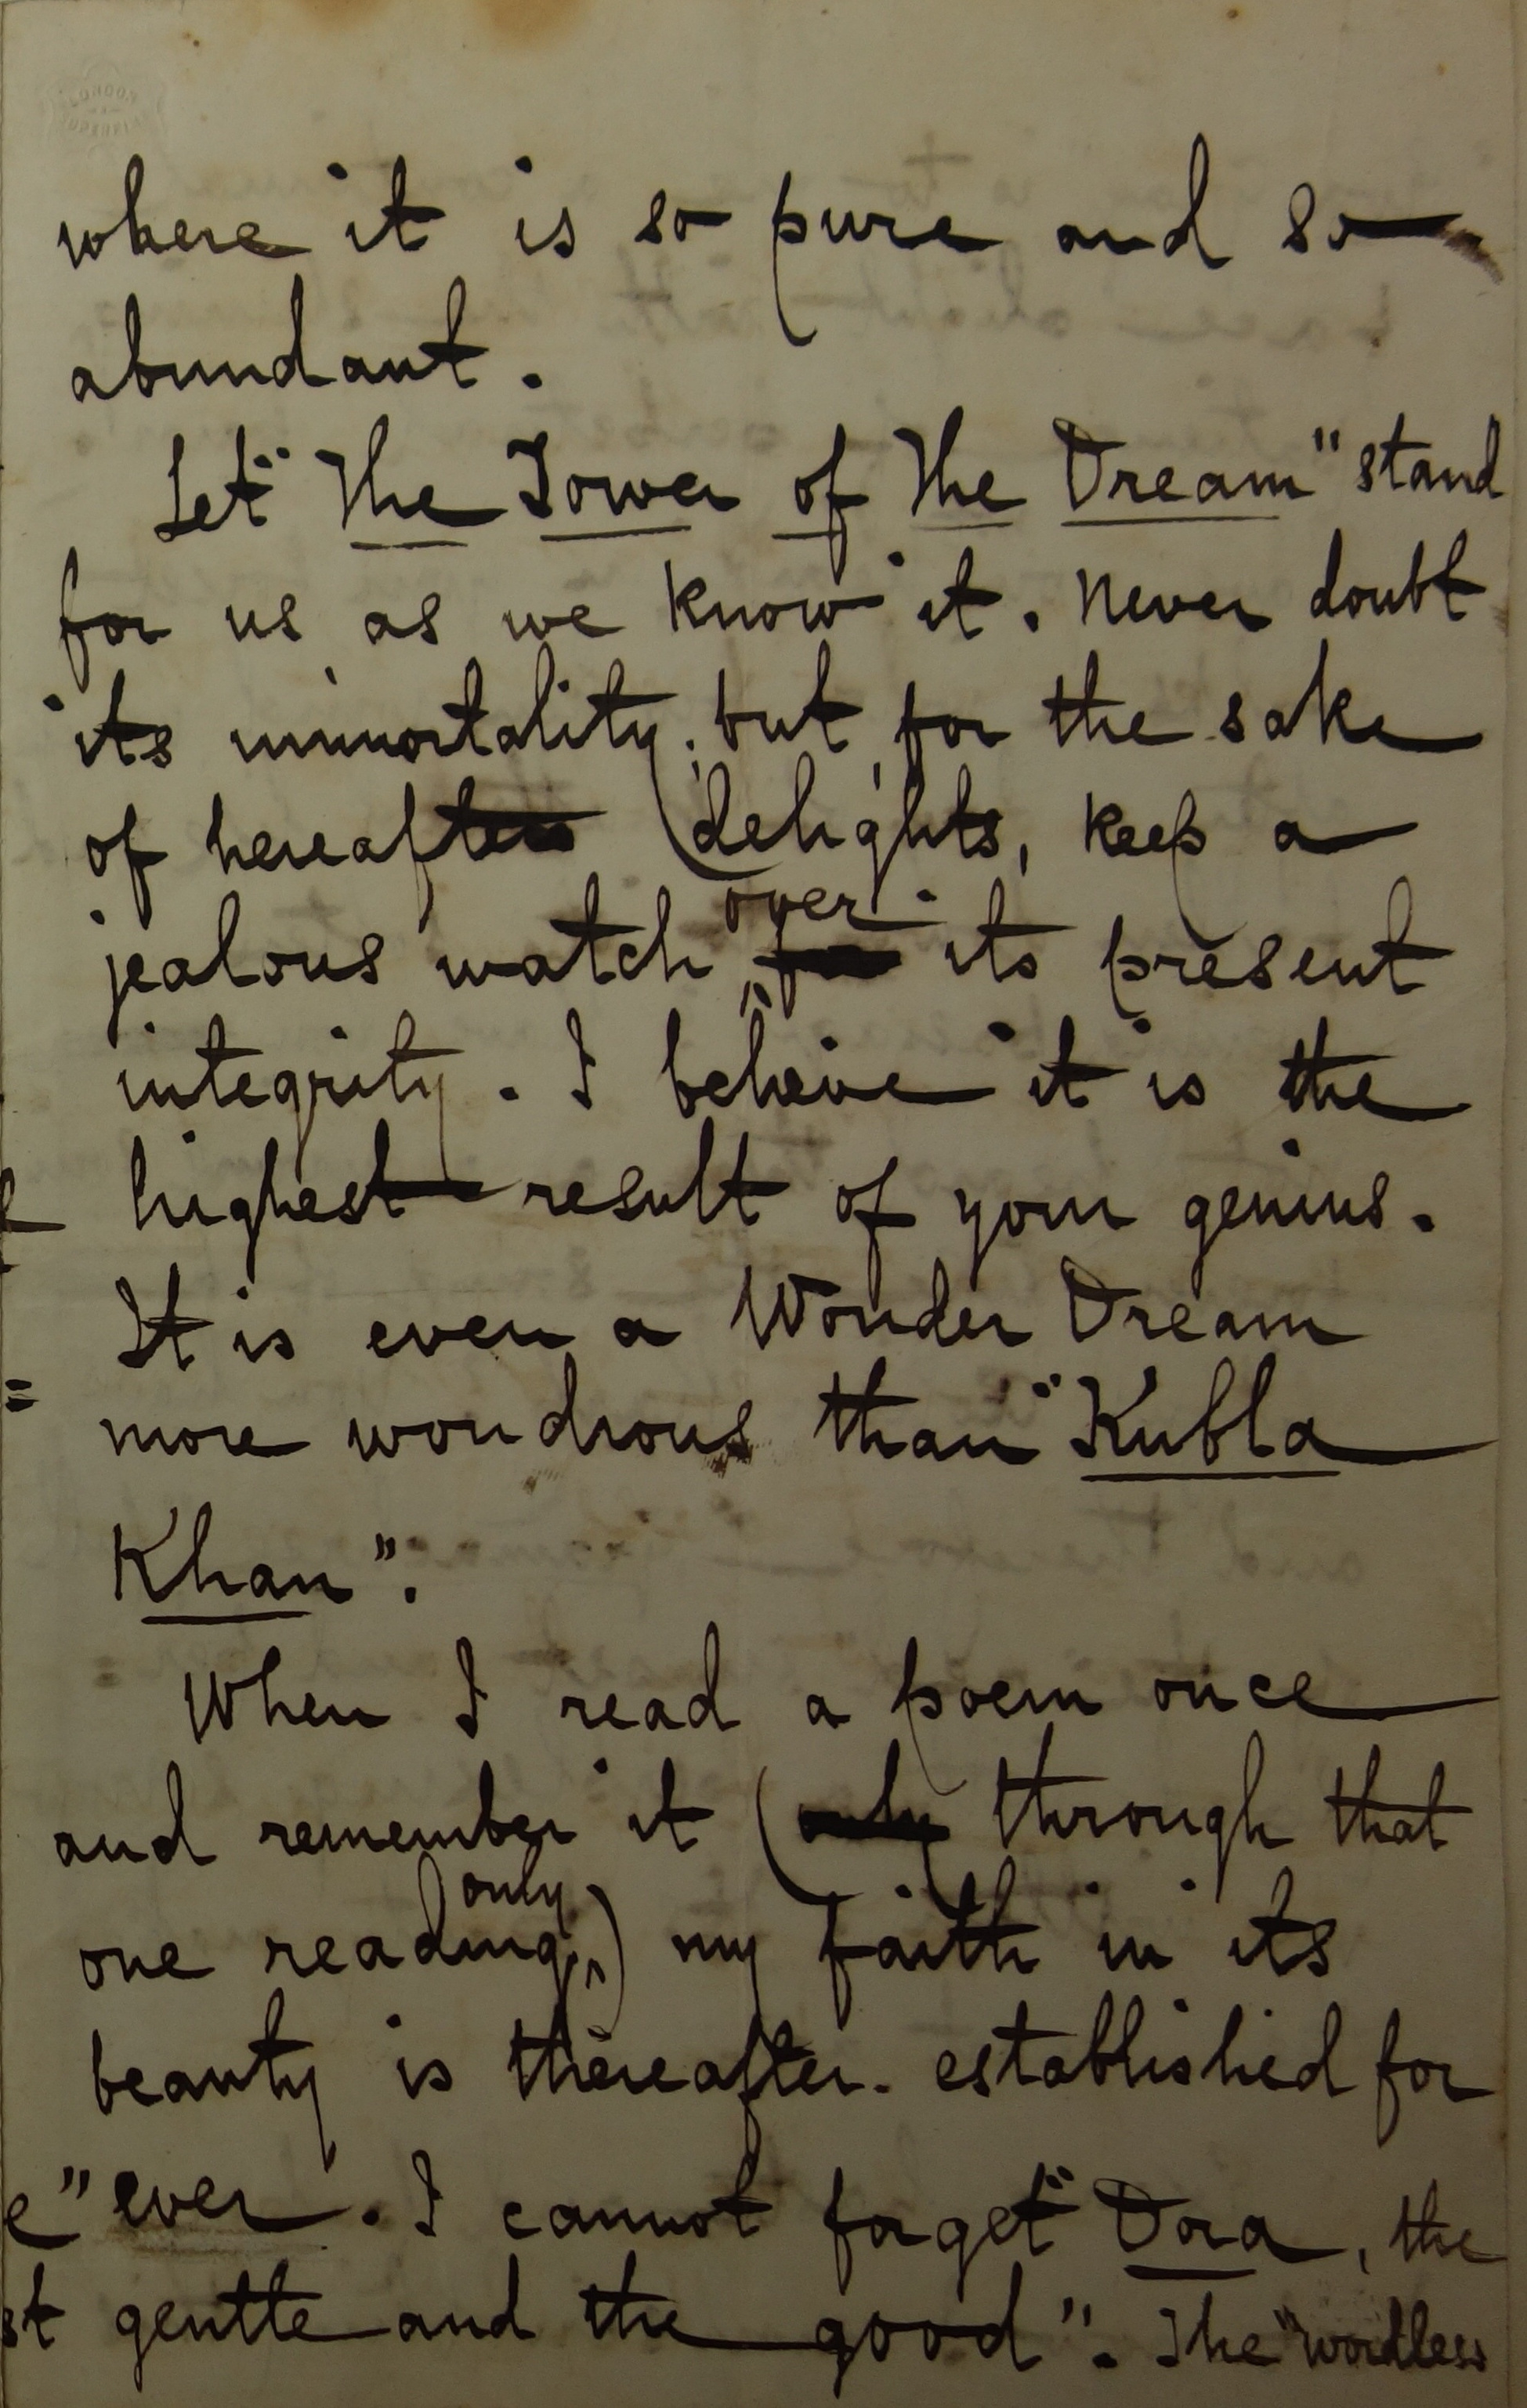 where it is so pure and so
abundant.
Let "The Tower of The Dream" stand
for us as we know it. Never doubt
its immortality; but, for the sake
of hereafter delights, keep a
jealous watch over its present
integrity. I believe it is the
highest result of your genius.
It is even a Wonder Dream
more wondrous than "Kubla
Khan".
When I read a poem once
and remember it (only through that
one reading only,) my faith in its
beauty is thereafter established for
ever. I cannot forget "Dora, the
gentle and the good". The "wordless